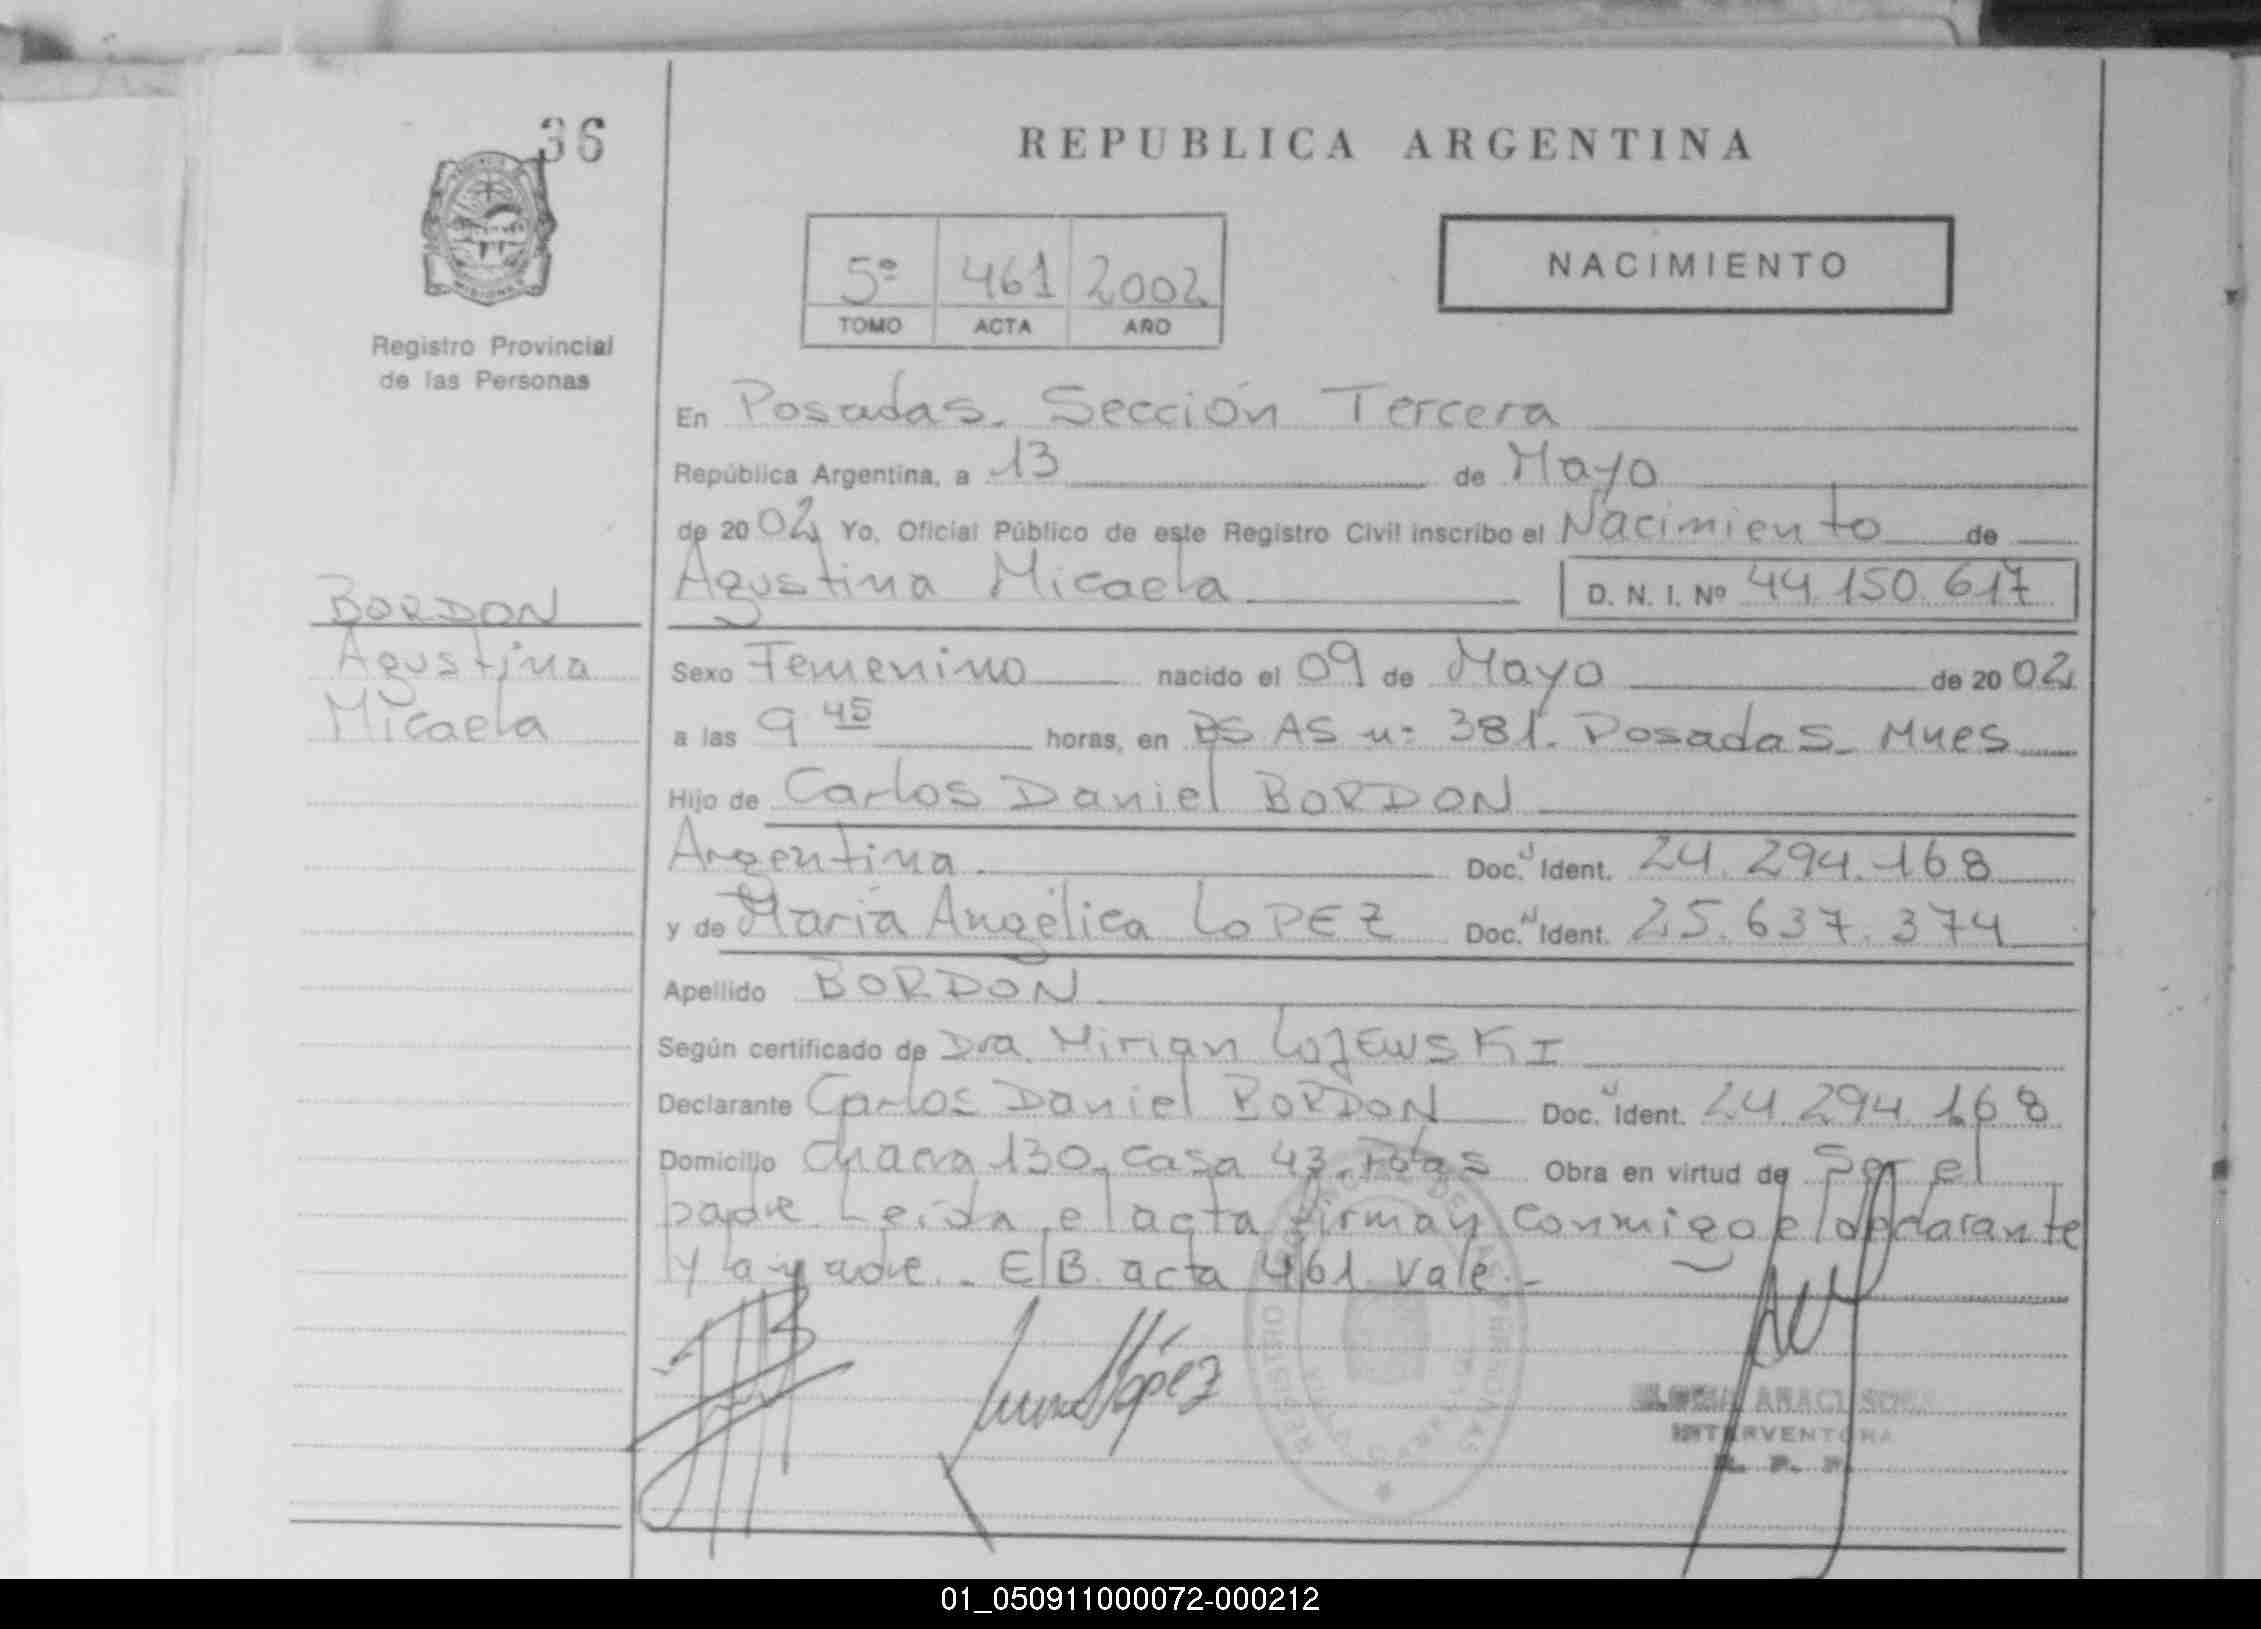 36
REPUBLICA ARGENTINA
NACIMIENTO
5º 461 2002
TOMO ACTA AÑO
Registro Provincial
de las Personas
En Posadas. Sección Tercera
República Argentina, a 13 de Mayo
de 2002 Yo, Oficial Público de este Registro Civil inscribo el Nacimiento de
Agustina Micaela D. N. I. Nº 44.150.617
BORDON
Agustina
Micaela
Sexo Femenino nacido el 09 de Mayo de 2002
a las 9 45 horas, en BS AS nº 381. Posadas. Mnes
Hijo de Carlos Daniel BORDON
Argentina Doc. N Ident. 24.294.168
y de María Angélica LOPEZ Doc. N Ident. 25.637.374
Apellido BORDON
Según certificado de Dra. Mirian LOJEWSKI
Declarante Carlos Daniel BORDON Doc. N Ident. 24.294.168
Domicilio Chacra 130. Casa 43. Pdas Obra en virtud de Ser el
padre. Leida el acta firman conmigo el declarante
y la madre. E/B. acta 461. Vale.-
López
REGISTRO PROVINCIAL DE LAS PERSONAS
INTERVENTORA
R. P. P.
01_050911000072-000212